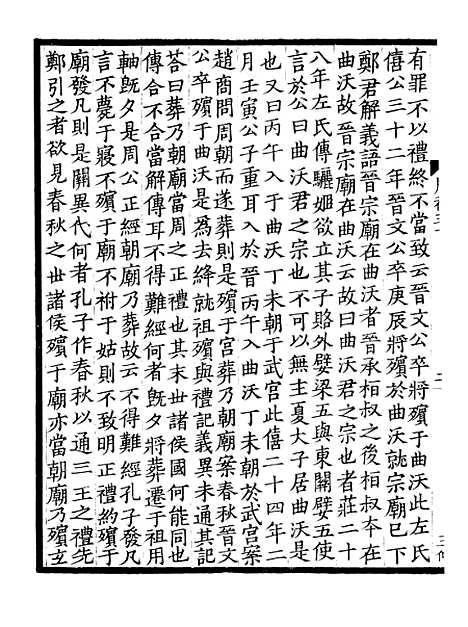 有罪不以禮終不當致云晉文公卒將殯于曲沃此左氏
僖公三十二年晉文公卒庚辰將殯於曲沃就宗廟已下
鄭君解義語晉宗廟在曲沃者晉承桓叔之後桓叔夲在
曲沃故晉宗廟在曲沃云故曰曲沃君之宗也者莊二十
八年左氏傳驪姬欲立其子賂外嬖梁五與東關嬖五使
言於公曰曲沃君之宗也不可以無主夏大子居曲沃是
也又曰丙午入于曲沃丁未朝于武宫此僖二十四年二
月壬寅公子重耳入於晉丙午入曲沃丁未朝於武宫案
趙商問周朝而遂葬則是殯于宫葬乃朝廟案春秋晉文
公卒殯于曲沃是為去絳就祖殯與禮記義異未通其記
荅曰葬乃朝廟當周之正禮也其末丗諸侯國何能同也
傳合不合當解傳耳不得難經何者旣夕將葬遷于祖用
軸旣夕是周公正經朝廟乃葬故云不得難經孔子發凡
言不薨于寢不殯于廟不祔于姑則不致明正禮約殯于
廟發凡則是關異代何者孔子作春秋以通三王之禮先
鄭引之者欲見春秋之丗諸侯殯于廟亦當朝廟乃殯㝎